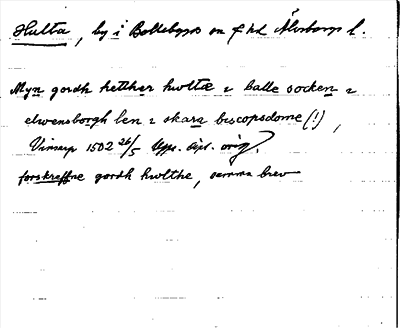 Hulta, by i Bollebygds sn o hd Älvsborgs l.
Myn gordh hetther hwltæ i balle socken i
elwensborgh len i skara bescopsdome (!),
Vinsarp 1502 26/5 Upps. dipl. orig.
forskreffne gordh hwlthe, samma brev